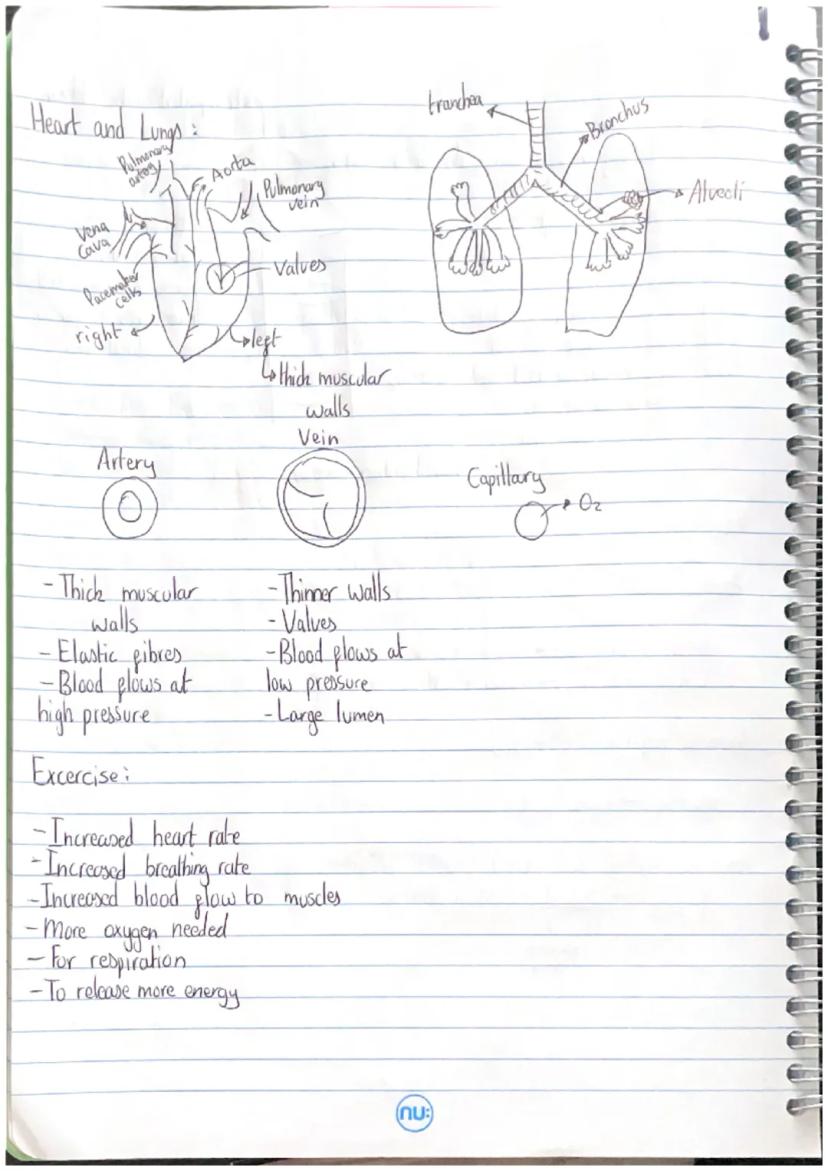 Heart and Lungs :
Pulmonary
artery
Aorta
Pulmonary
vein
Vena
Cava
Pacemaker
cells
Valves
right
left
thick muscular
walls
tranchea
Bronchus
Alveoli
Artery
Vein
Capillary
O₂
- Thick muscular
walls
- Elastic fibres
- Blood flows at
high pressure
- Thinner walls
- Valves
- Blood flows at
low pressure
- Large lumen
Excercise :
- Increased heart rate
- Increased breathing rate
- Increased blood flow to muscles
- More oxygen needed
- For respiration
- To release more energy
nu: